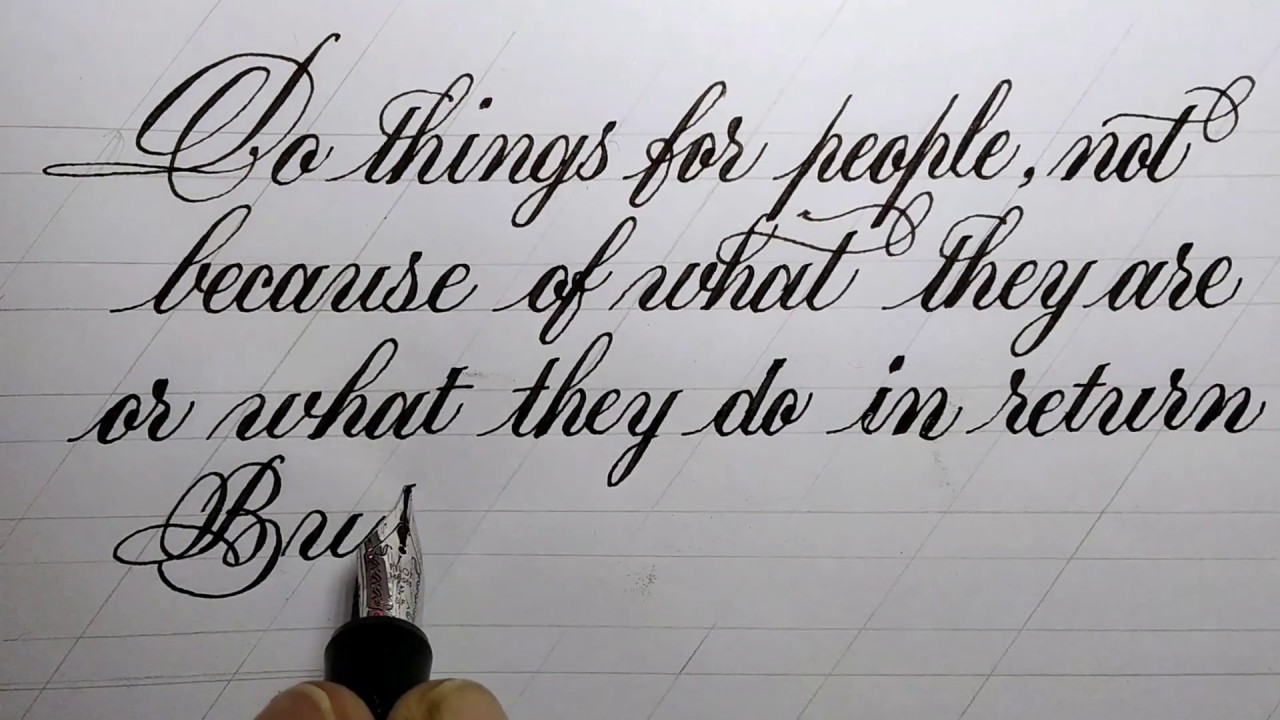 Do things for people, not
because of what they are
or what they do in return
Bu